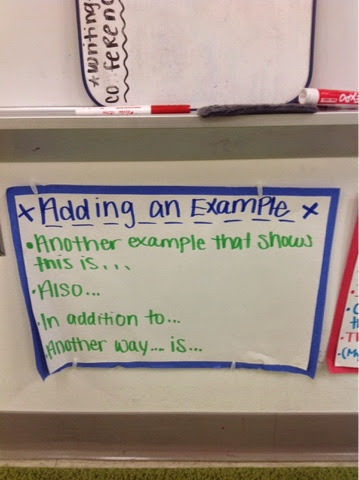 * Writing
conferenc
EXPO
* Adding an Example *
• Another example that shows
this is...
• Also...
• In addition to...
• Another way.... is...